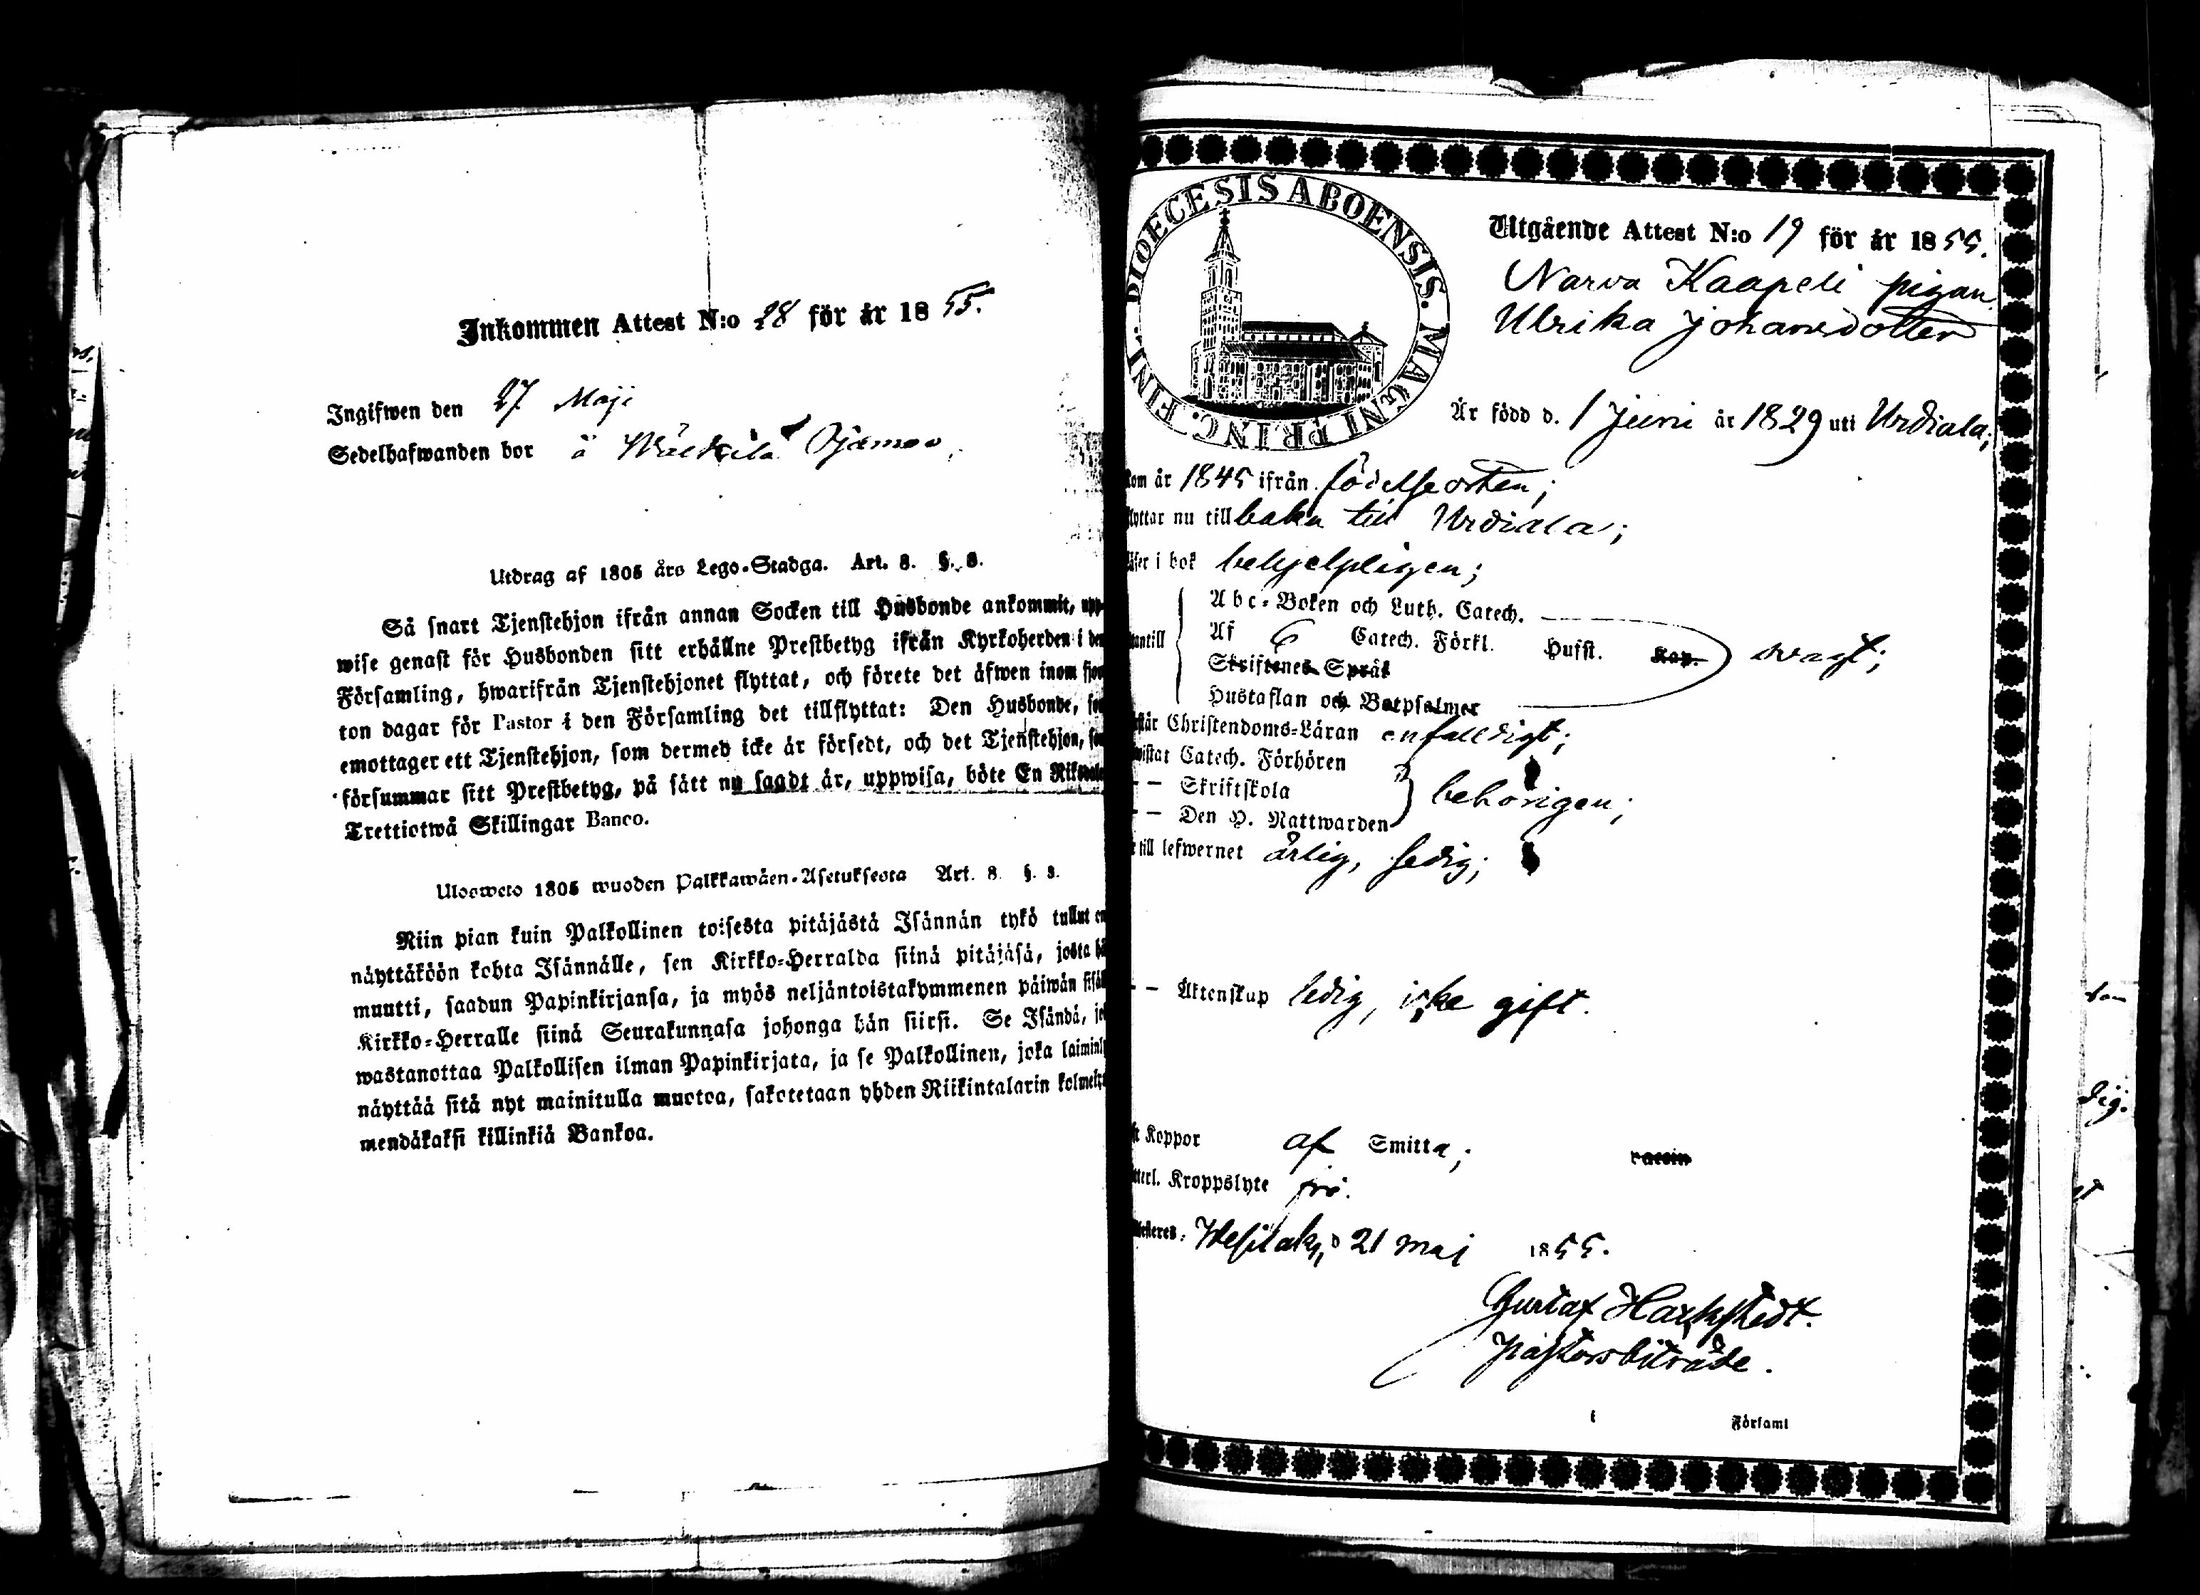 Inkommen Attest N:o 28 för år 1855.
Ingifwen den 27 Maji
Sedelhafwanden bor
Utdrag af 1805 års Lego-Stadga. Art. 8. §. 8.
Så snart Tjenstehjon ifrån annan Socken till Husbonde ankommit, upp-
wise genast för Husbonden sitt erhållne Prestbetyg ifrån Kyrkoherden i den
Församling, hwarifrån Tjenstehjonet flyttat, och förete det äfwen inom fjor
ton dagar för Pastor i den Församling det tillflyttat: Den Husbonde, so
emottager ett Tjenstehjon, som dermed icke är försedt, och det Tjenstehjon, so
försummar sitt Prestbetyg, på sätt nu sagdt är, uppwisa, böte En Riksdaler
Trettiotwå Skillingar Banco.
Ulosweto 1805 wuoden Palkkawäen-Asetuksesta Art. 8 §. 8.
Niin pian kuin Palkollinen toisesta pitäjästä Isännän tykö tullut on
näyttäköön kohta Isännälle, sen Kirkko-Herralda siinä pitäjäsä, josta hä
muutti, saadun Papinkirjansa, ja myös neljäntoistakymmenen päiwän sisäl
Kirkko-Herralle siinä Seurakunnasa johonga hän siirsi. Se Isändä, jo
wastanottaa Palkollisen ilman Papinkirjata, ja se Palkollinen, joka laiminly
näyttää sitä nyt mainitulla muotoa, sakotetaan yhden Riikintalarin kolmeky
mendäkaksi killinkiä Bankoa.
DIOECESIS ABOENSIS. MAGNI PRINC. FINL.
Utgående Attest N:o 19 för år 1855.
Narva Kaapeli pigan
Ulrika Johansdotter
Är född d. 1 Juni år 1829 uti Urdiala;
kom år 1845 ifrån födelseorten;
flyttar nu till baka till Urdiala;
läser i bok behjelpligen;
utantill
Abc-Boken och Luth. Catech.
Af 6 Catech. Förkl. Husst. Kap. svagt;
Skriftenes Språk
Hustaflan och Botpsalmer
står Christendoms-Läran enfaldigt;
wistat Catech. Förhören
— Skriftskola behörigen;
— Den H. Nattwarden
till lefwernet ärlig, sedig;
— Äktenskap ledig, icke gift.
ft Koppor af Smitta; vaccin
tterl. Kroppslyte fri.
Wesilaks, d 21 maj 1855.
Gustaf
pastorsbiträde.
i Församl